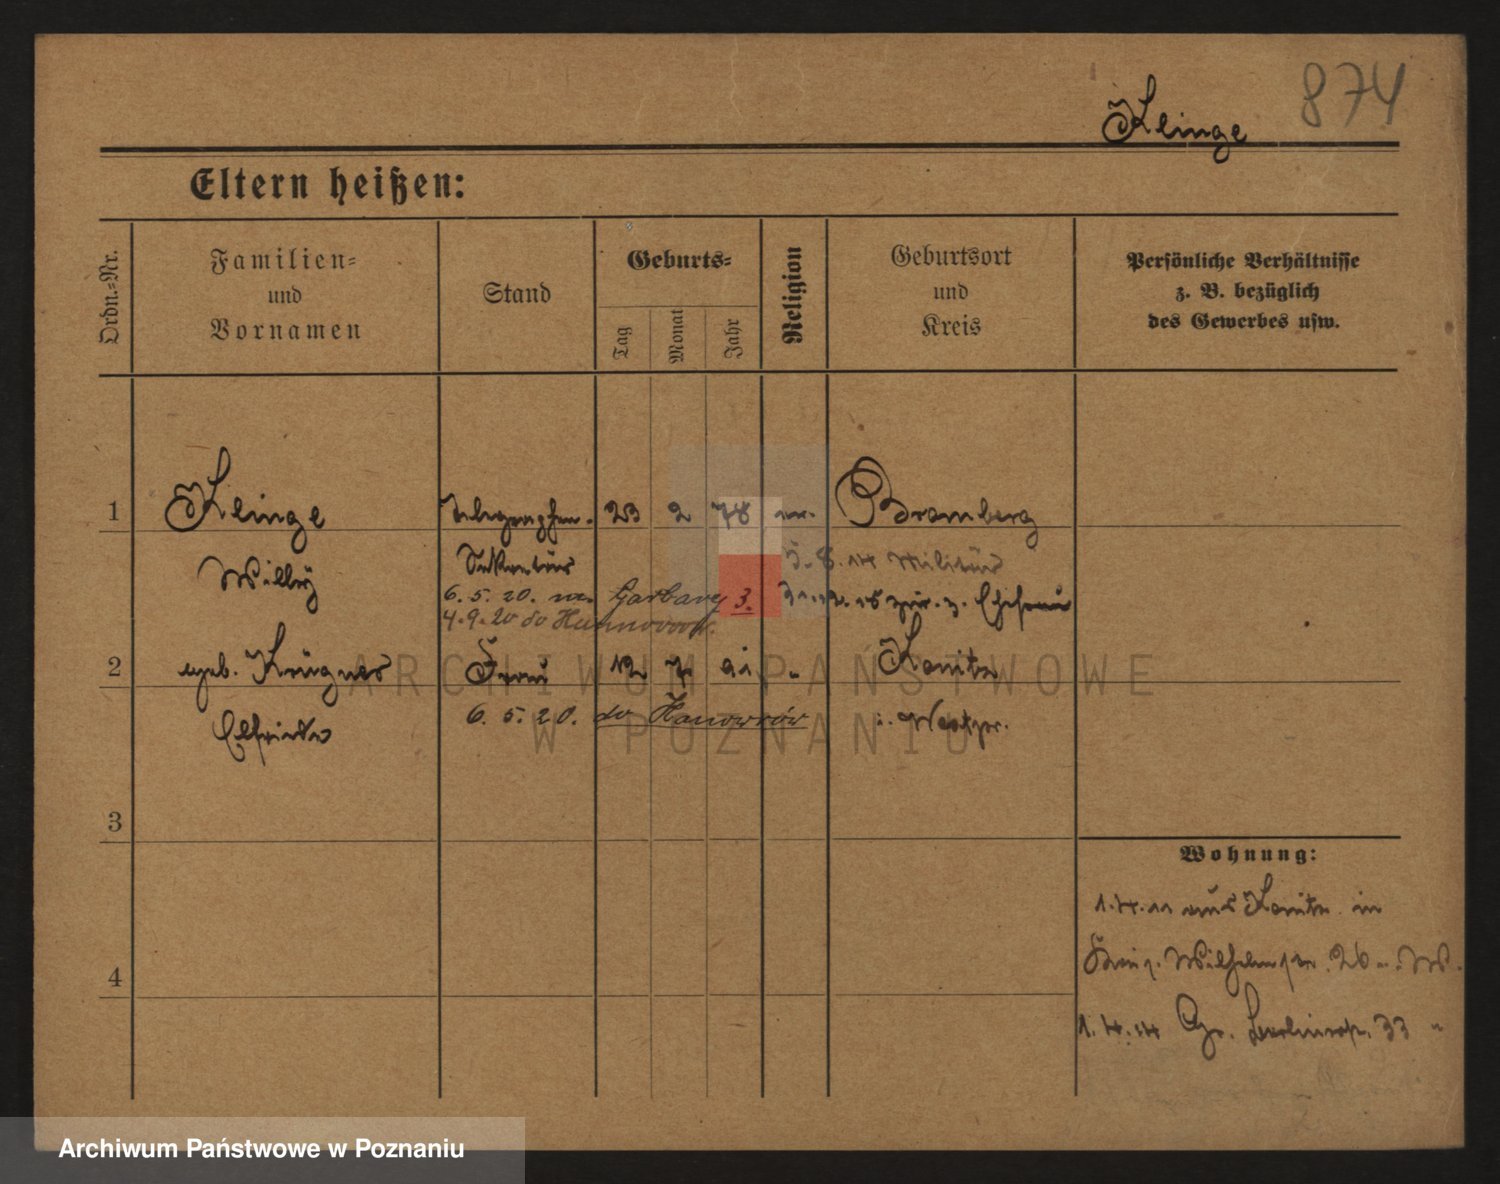 874
Klinge
Eltern heißen:
Ordn.-Nr.
Familien-
und
Vornamen
Stand
Geburts-
Tag
Monat
Jahr
Religion
Geburtsort
und
Kreis
Persönliche Verhältnisse
z. B. bezüglich
des Gewerbes usw.
1
Klinge
Telegraphen-
23
2
78
ev.
Bromberg
Willy
Sekretär
5. 8. 14 Militär
6. 5. 20. Garbary 3.
15 zur. z. Ehefrau
4. 9. 20 do
2
geb. Krügner
Frau
12
7
"
Konitz
Elfriede
6. 5. 20. do Hanowrów
i. Westpr.
3
4
Wohnung:
1. 4. 11 aus Konitz in
Wilhelmstr. 26 W.
1. 4. 14 Gr. Berlinerstr. 33 "
ARCHIWUM PAŃSTWOWE
W POZNANIU
Archiwum Państwowe w Poznaniu